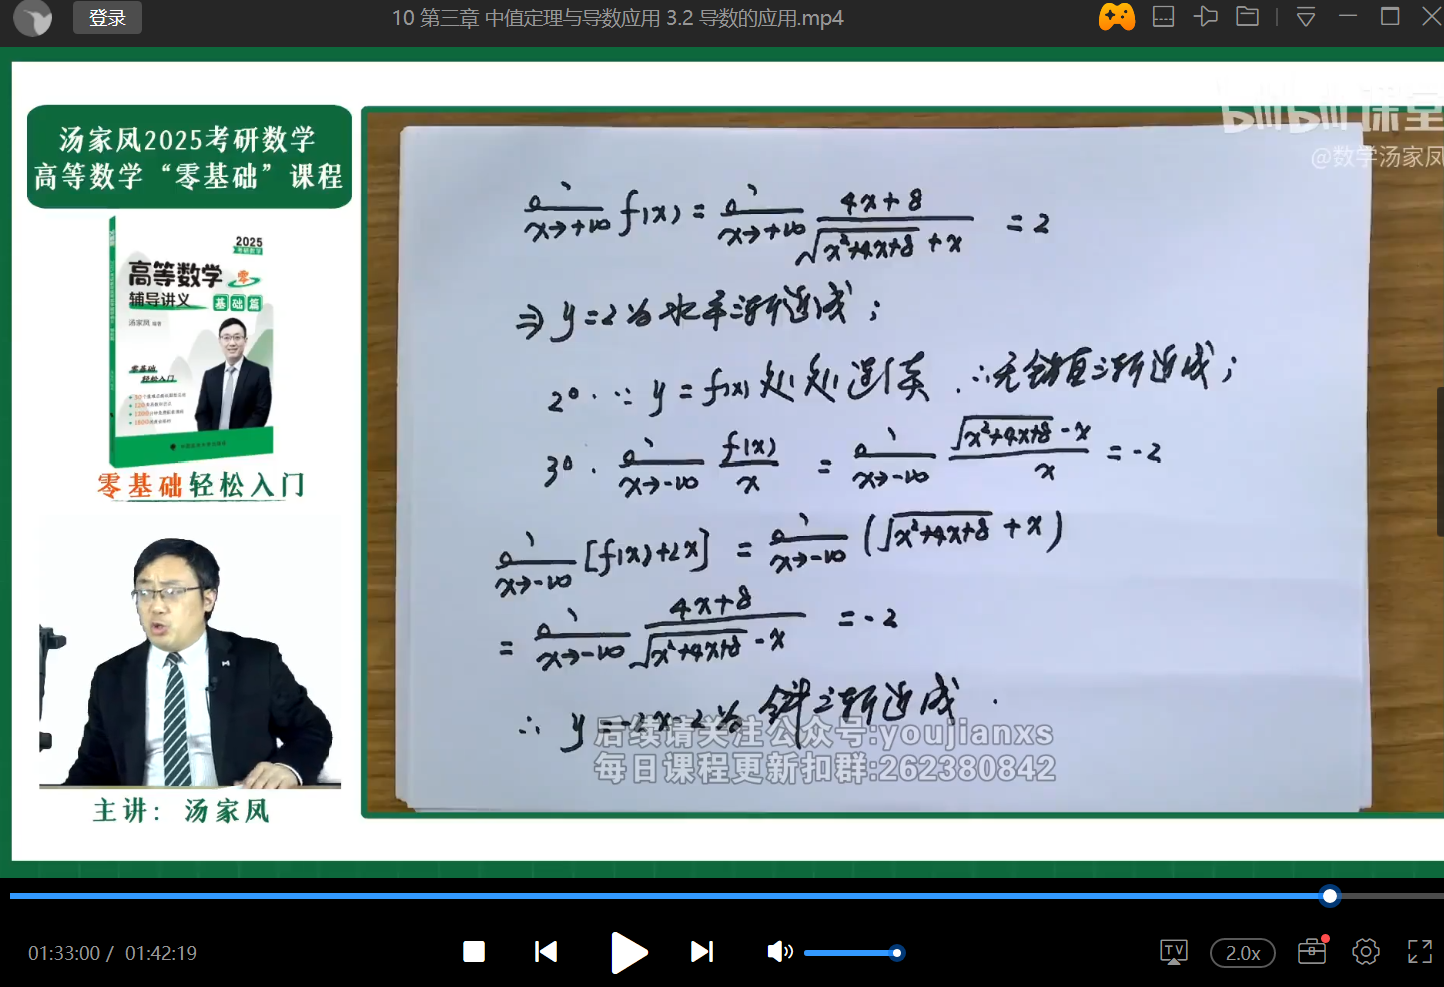 登录
10 第三章 中值定理与导数应用 3.2 导数的应用.mp4
汤家凤2025考研数学
高等数学“零基础”课程
2025
高等数学
零
辅导讲义
基础篇
汤家凤
零基础
轻松入门
零基础轻松入门
主讲：汤家凤
bilibili课堂
@数学汤家凤
lim x→+∞ f(x) = lim x→+∞ (4x+8)/(√(x²+4x+8)+x) = 2
⇒ y=2为水平渐近线；
2°. ∵ y=f(x)处处连续，∴无铅直渐近线；
3°. lim x→-∞ f(x)/x = lim x→-∞ (√(x²+4x+8)-x)/x = -2
lim x→-∞ [f(x)+2x] = lim x→-∞ (√(x²+4x+8)+x)
= lim x→-∞ (4x+8)/(√(x²+4x+8)-x) = -2
∴ y=-2x-2为斜渐近线.
后续请关注公众号:youjianxs
每日课程更新扣群:262380842
01:33:00 / 01:42:19
TV
2.0x